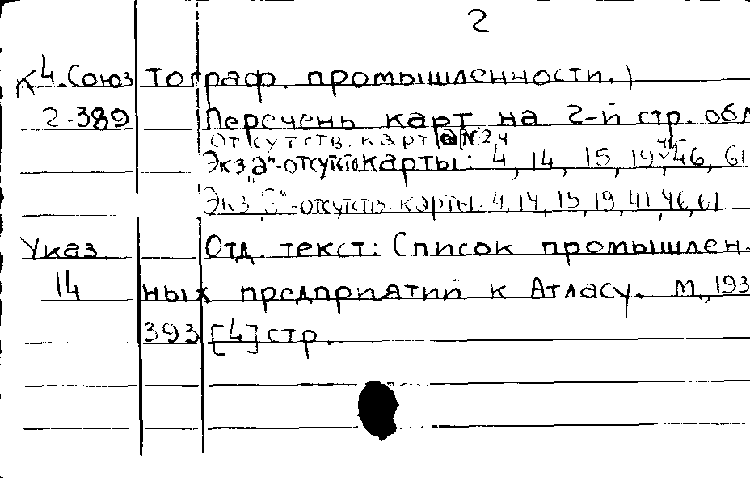 2
К 4. Союз тограф. промышленности.)
2-389 Перечень карт на 2-й стр. обл
Отсутств. карт №24
Экз "а"-отсутств карты: 4, 14, 15, 19, 46, 61
Экз -отсутств. карты. 4, 14, 15, 19, 41, 46, 61
Указ. Отд. текст: Список промышлен.
14 ных предприятий к Атласу. М., 193
393 [4] стр.